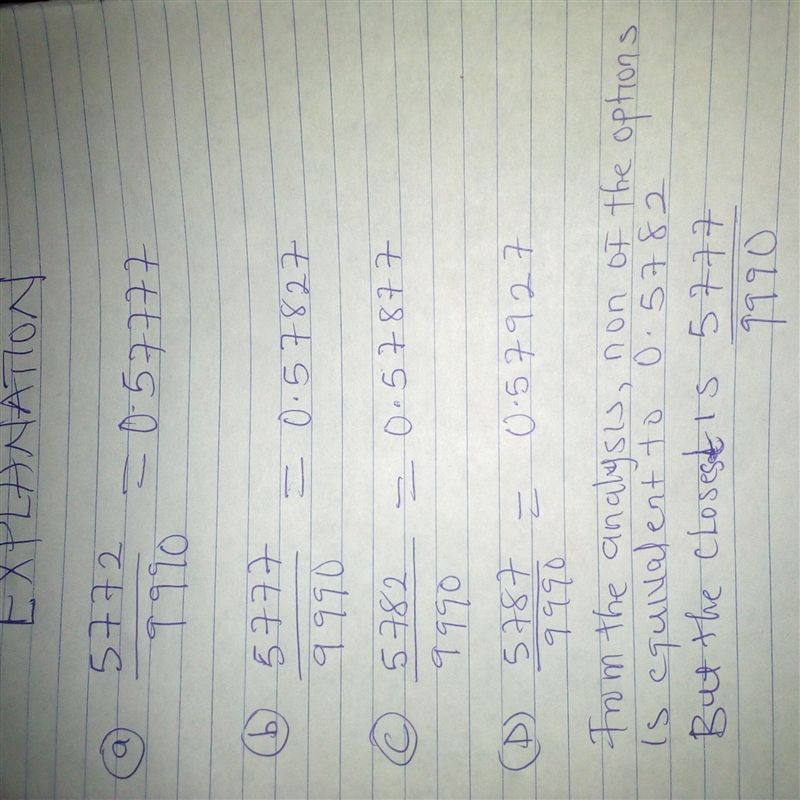 EXPLANATION
(a) 5772/9990 = 0.57777
(b) 5777/9990 = 0.57827
(C) 5782/9990 = 0.57877
(D) 5787/9990 = 0.57927
From the analysis, non of the options
is equivalent to 0.5782
But the closest is 5777/9990